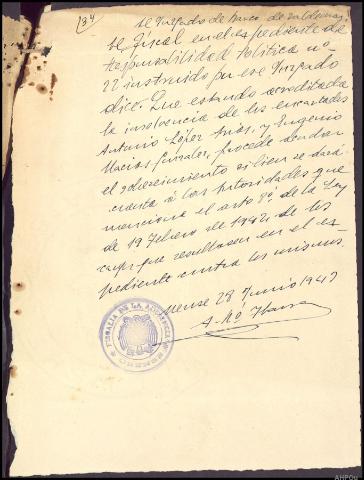 134
Al Juzgado de Barco de Valdeorras
El Fiscal en el expediente de
responsabilidad Política no
22 instruido por ese Juzgado
dice: Que estando acreditada
la insolvencia de los encartados
Antonio López Arias, y Eugenio
Macias González, procede acordar
el sobreseimiento si bien se dará
cuenta a las autoridades que
menciona el arto 8º de la Ley
de 19 Febrero de 1942, de los
cargos que resultasen en el ex-
pediente contra los mismos.
Orense 28 Junio 1943
FISCALIA DE LA AUDIENCIA
AHPOu